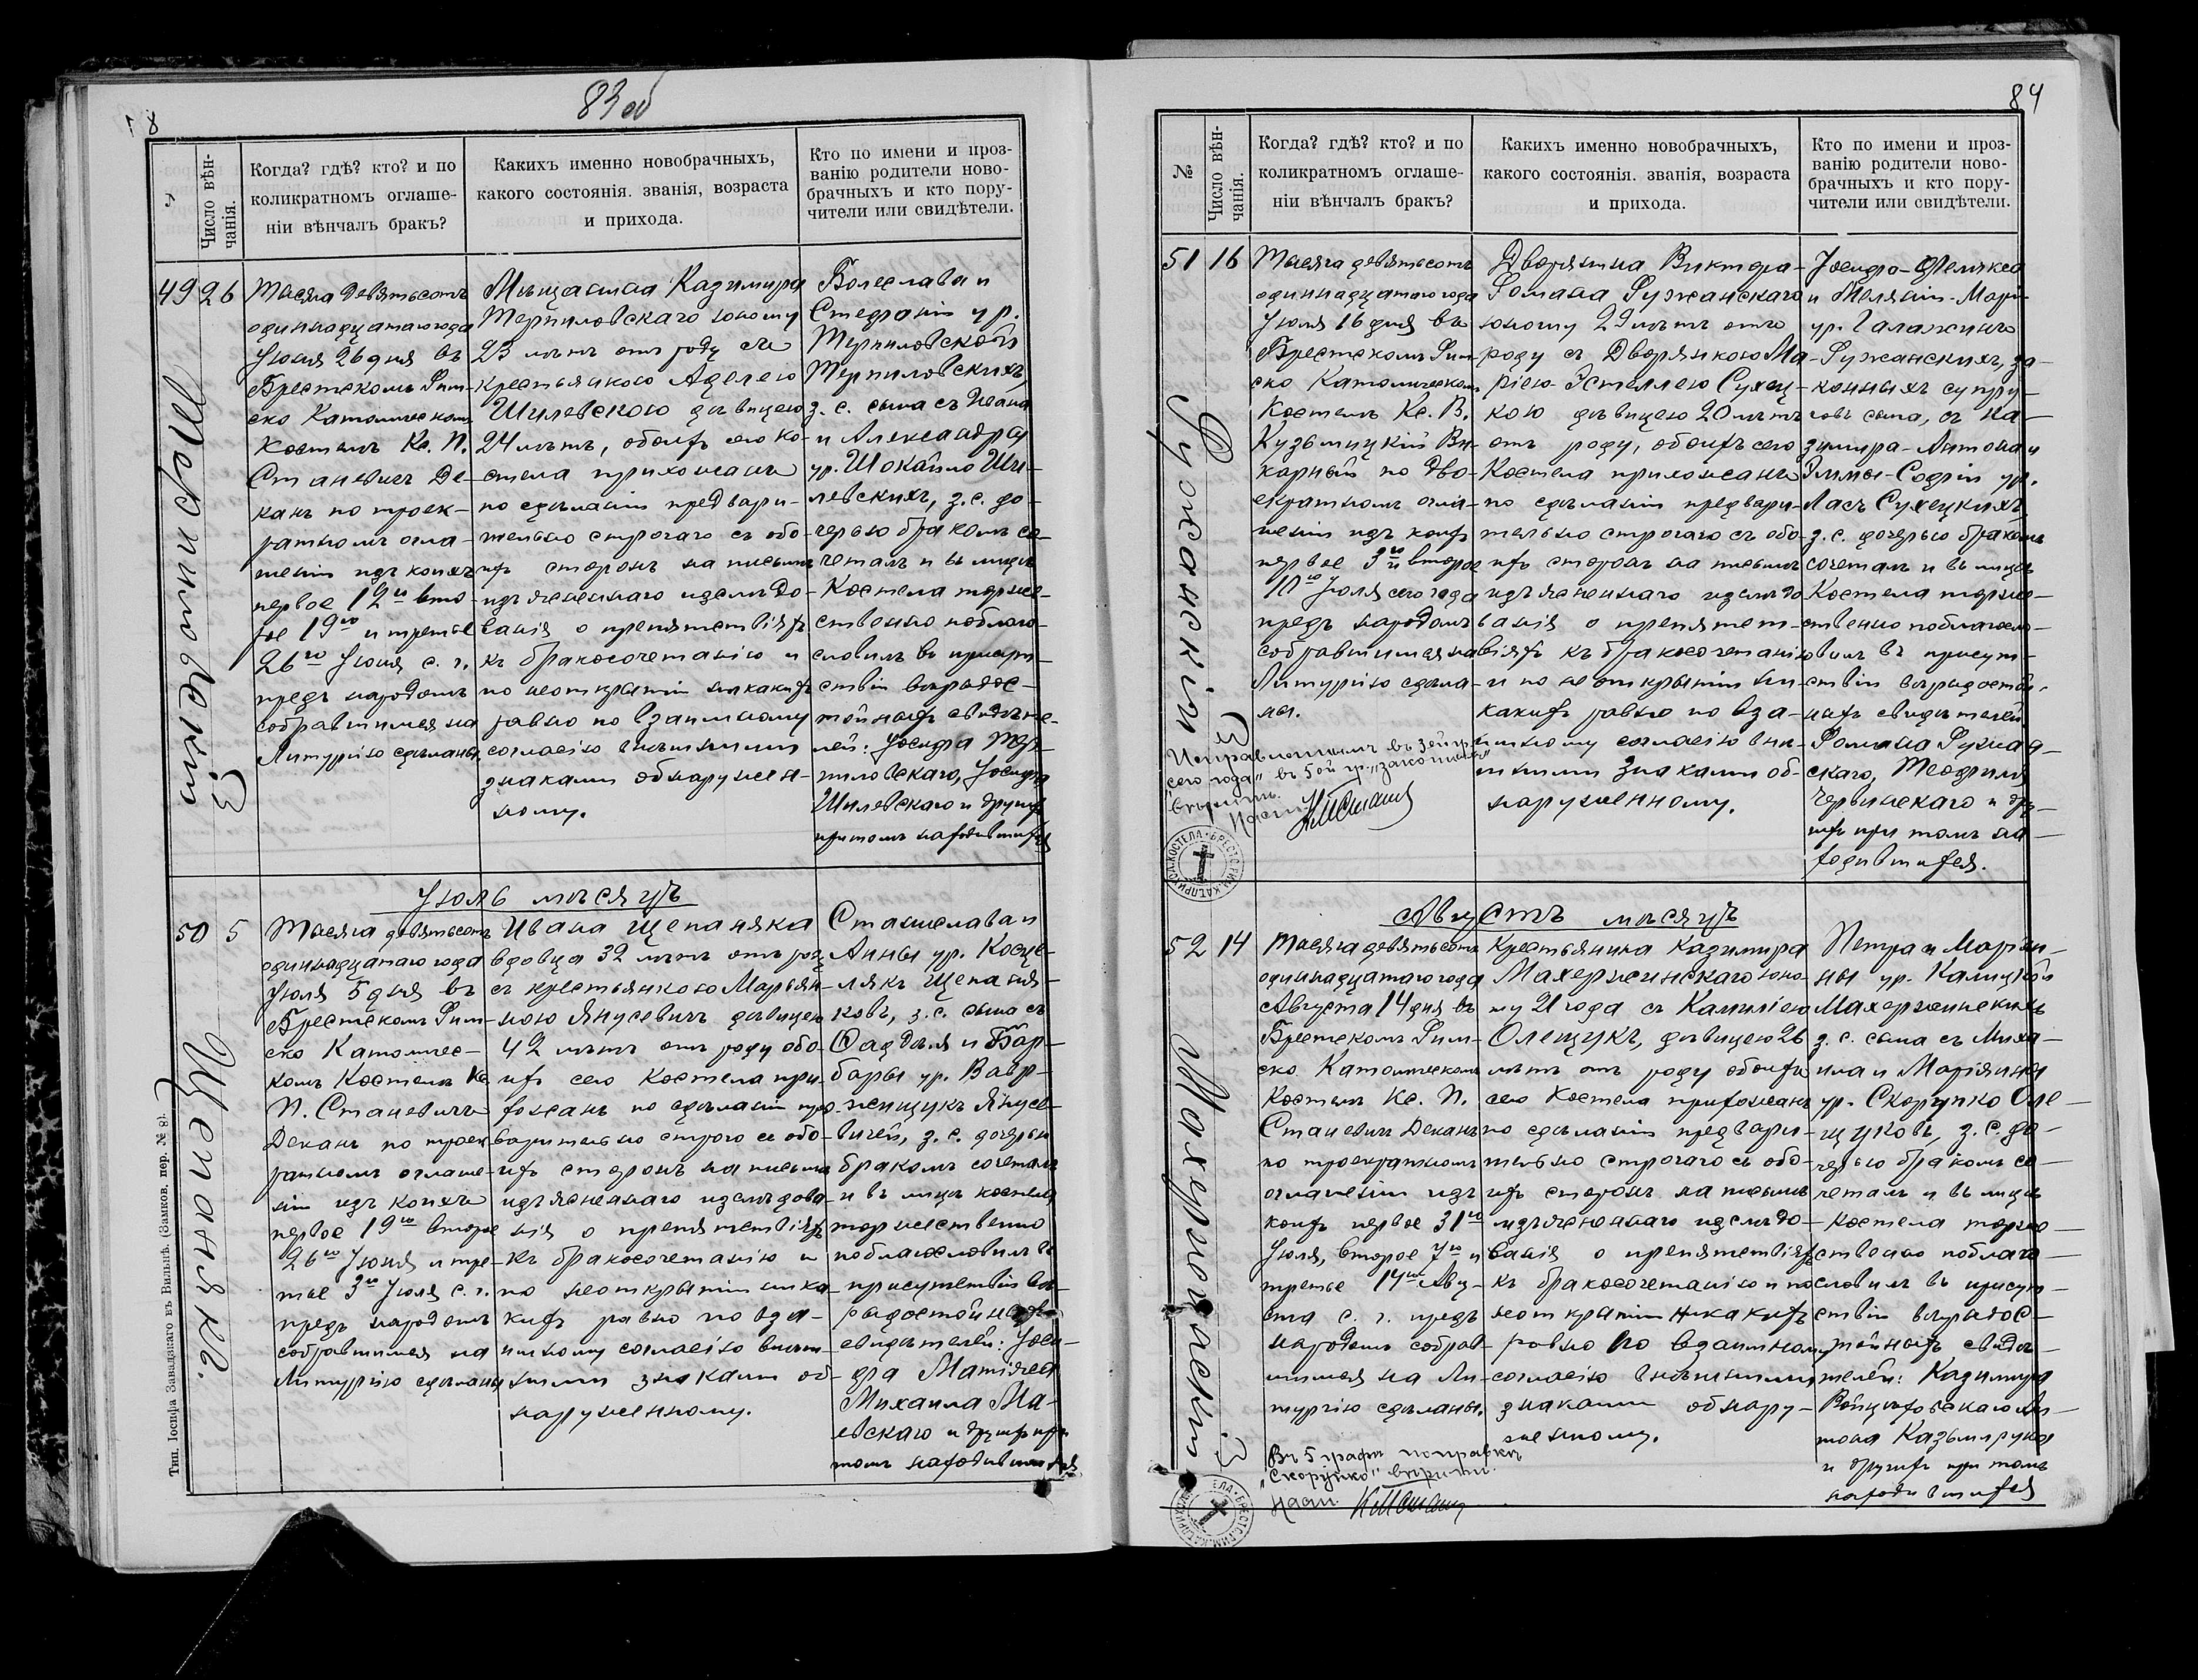 83 об
№
Число вѣн-
чанія.
Когда? гдѣ? кто? и по
коликратномъ оглаше-
ніи вѣнчалъ бракъ?
Какихъ именно новобрачныхъ,
какого состоянія. званія, возраста
и прихода.
Кто по имени и проз-
ванію родители ново-
брачныхъ и кто пору-
чители или свидѣтели.
49
26
Терпиловскій
Тысяча девятьсотъ
одиннадцатаго года
Іюня 26 дня въ
Брестскомъ Рим-
ско Католическомъ
Костелѣ Кс. П.
Станевичъ Де-
канъ по троек-
ратномъ огла-
шеніи изъ коихъ
первое 12го вто-
рое 19го и третье
26го Іюня с. г.
предъ народомъ
собравшимся на
Литургію сдѣланы,
Мѣщанина Казимира
Терпиловскаго юношу
23 лѣтъ отъ роду съ
крестьянкою Аделею
Шилевскою дѣвицею
24 лѣтъ, обоихъ сего Ко-
стела прихожанъ
по сдѣланіи предвари-
тельно строгаго съ обо-
ихъ сторонъ на письмѣ
изъясненнаго изслѣдо-
ванія о препятствіяхъ
къ бракосочетанію и
по неоткрытіи никакихъ
равно по взаимному
согласію внѣшними
знаками обнаружен-
ному.
Болеслава и
Стефаніи ур.
Терпиловской
Терпиловскихъ,
з. с. сына съ Ивана
и Александры
ур. Шокайло Ши-
левскихъ, з. с. до-
черью бракомъ со-
четалъ и въ лицѣ
Костела торже-
ственно поблаго-
словилъ въ присут-
ствіи вѣрадос-
тойныхъ свидѣте-
лей: Іосифа Тер-
пиловскаго, Іосифа
Шилевскаго и другихъ
притомъ находившихся
Іюль мѣсяцъ
50
5
Щепанякъ.
Тысяча девятьсотъ
одиннадцатаго года
Іюля 5 дня въ
Брестскомъ Рим-
ско Католичес-
комъ Костелѣ Кс.
П. Станевичъ
Деканъ по троек-
ратномъ оглаше-
ніи изъ коихъ
первое 19го второе
26го Іюня и тре-
тье 3го Іюля с. г.
предъ народомъ
собравшимся на
Литургію сдѣланы
Ивана Щепаняка
вдовца 32 лѣтъ отъ роду
съ крестьянкою Марьян-
ною Янусевичъ дѣвицею
42 лѣтъ отъ роду обо-
ихъ сего Костела при-
хожанъ по сдѣланіи пред-
варительно строго съ обо-
ихъ сторонъ на письмѣ
изъясненнаго изслѣдова-
нія о препятствіяхъ
къ бракосочетанію и
по неоткрытіи ника-
кихъ равно по вза-
имному согласію внѣш-
ними знаками об-
наруженному.
Станислава и
Анны ур. Косце-
лякъ Щепаня-
ковъ, з. с. сына съ
Фаддѣя и Бар-
бары ур. Вавр-
женщукъ Янусе-
вичей, з. с. дочерью
бракомъ сочеталъ
и въ лицѣ костела
торжественно
поблагословилъ въ
присутствіи вѣ-
радостойныхъ
свидѣтелей: Іоси-
фа Матіяса
Михаила Ма-
евскаго и другихъ при
томъ находившихся
Тип. Іосифа Завадзкаго въ Вильнѣ. (Замков. пер. № 8).
84
№
Число вѣн-
чанія.
Когда? гдѣ? кто? и по
коликратномъ оглаше-
ніи вѣнчалъ бракъ?
Какихъ именно новобрачныхъ,
какого состоянія. званія, возраста
и прихода.
Кто по имени и проз-
ванію родители ново-
брачныхъ и кто пору-
чители или свидѣтели.
51
16
Ружанскій
Тысяча девятьсотъ
одиннадцатаго года
Іюля 16 дня въ
Брестскомъ Рим-
ско Католическомъ
Костелѣ Кс. В.
Кузьмицкій Ви-
карный по дво-
екратномъ огла-
шеніи изъ коихъ
первое 3го и второе
10го Іюля сего года
предъ народомъ
собравшимся на
Литургію сдѣла-
ны.
Дворянина Виктора-
Романа Ружанскаго
юношу 29 лѣтъ отъ
роду съ Дворянкою Ма-
ріею-Эстеллею Сухец-
кою дѣвицею 20 лѣтъ
отъ роду, обоихъ сего
Костела прихожанъ
по сдѣланіи предвари-
тельно строгаго съ обо-
ихъ сторонъ на письмѣ
изъясненнаго изслѣдо
ванія о препятст-
віяхъ къ бракосочетанію
и по неоткрытіи ни-
какихъ равно по вза-
имному согласію внѣ-
шними знаками об-
наруженному.
Іосифа-Феликса
и Меляніи-Маріи
ур. Галажинъ
Ружанскихъ, за-
конныхъ супру-
говъ сына, съ Ка-
зимира-Антона и
Эммы-Софіи ур.
Ласъ Сухецкихъ,
з. с. дочерью бракомъ
сочеталъ и въ лицѣ
Костела торже-
ственно поблагосло-
вилъ въ присут-
ствіи вѣрадостой-
ныхъ свидѣтелей
Романа Ружан-
скаго, Теофила
Червинскаго и дру-
гихъ при томъ на-
ходившихся.
Исправленнымъ въ 3ей гр.
"сего года" въ 5ой гр. "законныхъ"
вѣрить.
БРЕСТС.РИМ.КАТ.ПРИХОД.КОСТЕЛА
Августъ мѣсяцъ
52
14
Махержинскій
Тысяча девятьсотъ
одиннадцатаго года
Августа 14 дня въ
Брестскомъ Рим-
ско Католическомъ
Костелѣ Кс. П.
Станевичъ Деканъ
по троекратномъ
оглашеніи изъ
коихъ первое 31го
Іюля, второе 7го и
третье 14го Авгу-
ста с. г. предъ
народомъ собрав-
шимся на Ли-
тургію сдѣланы.
Крестьянина Казимира
Махержинскаго юно-
шу 21 года съ Камиліею
Олещукъ, дѣвицею 26
лѣтъ отъ роду обоихъ
сего Костела прихожанъ
по сдѣланіи предвари-
тельно строгаго съ обо-
ихъ сторонъ на письмѣ
изъясненнаго изслѣдо-
ванія о препятствіяхъ
къ бракосочетанію и по
неоткрытіи никакихъ
равно по взаимному
согласію внѣшними
знаками обнару-
женному.
Петра и Маріян-
ны ур. Калицкой
Махержинскихъ
з. с. сына съ Миха-
ила и Маріянны
ур. Скорупко Оле-
щуковъ, з. с. до-
черью бракомъ со-
четалъ и въ лицѣ
Костела торже-
ственно поблаго-
словилъ въ присут-
ствіи вѣрадос-
тойныхъ свидѣ-
телей: Казимира
Войцѣховскаго Ан-
тона Казьмирука
и другихъ при томъ
находившихся
Въ 5 графѣ поправкѣ
"Скорупко" вѣрить.
БРЕСТС.РИМ.КАТ.ПРИХОД.КОСТЕЛА